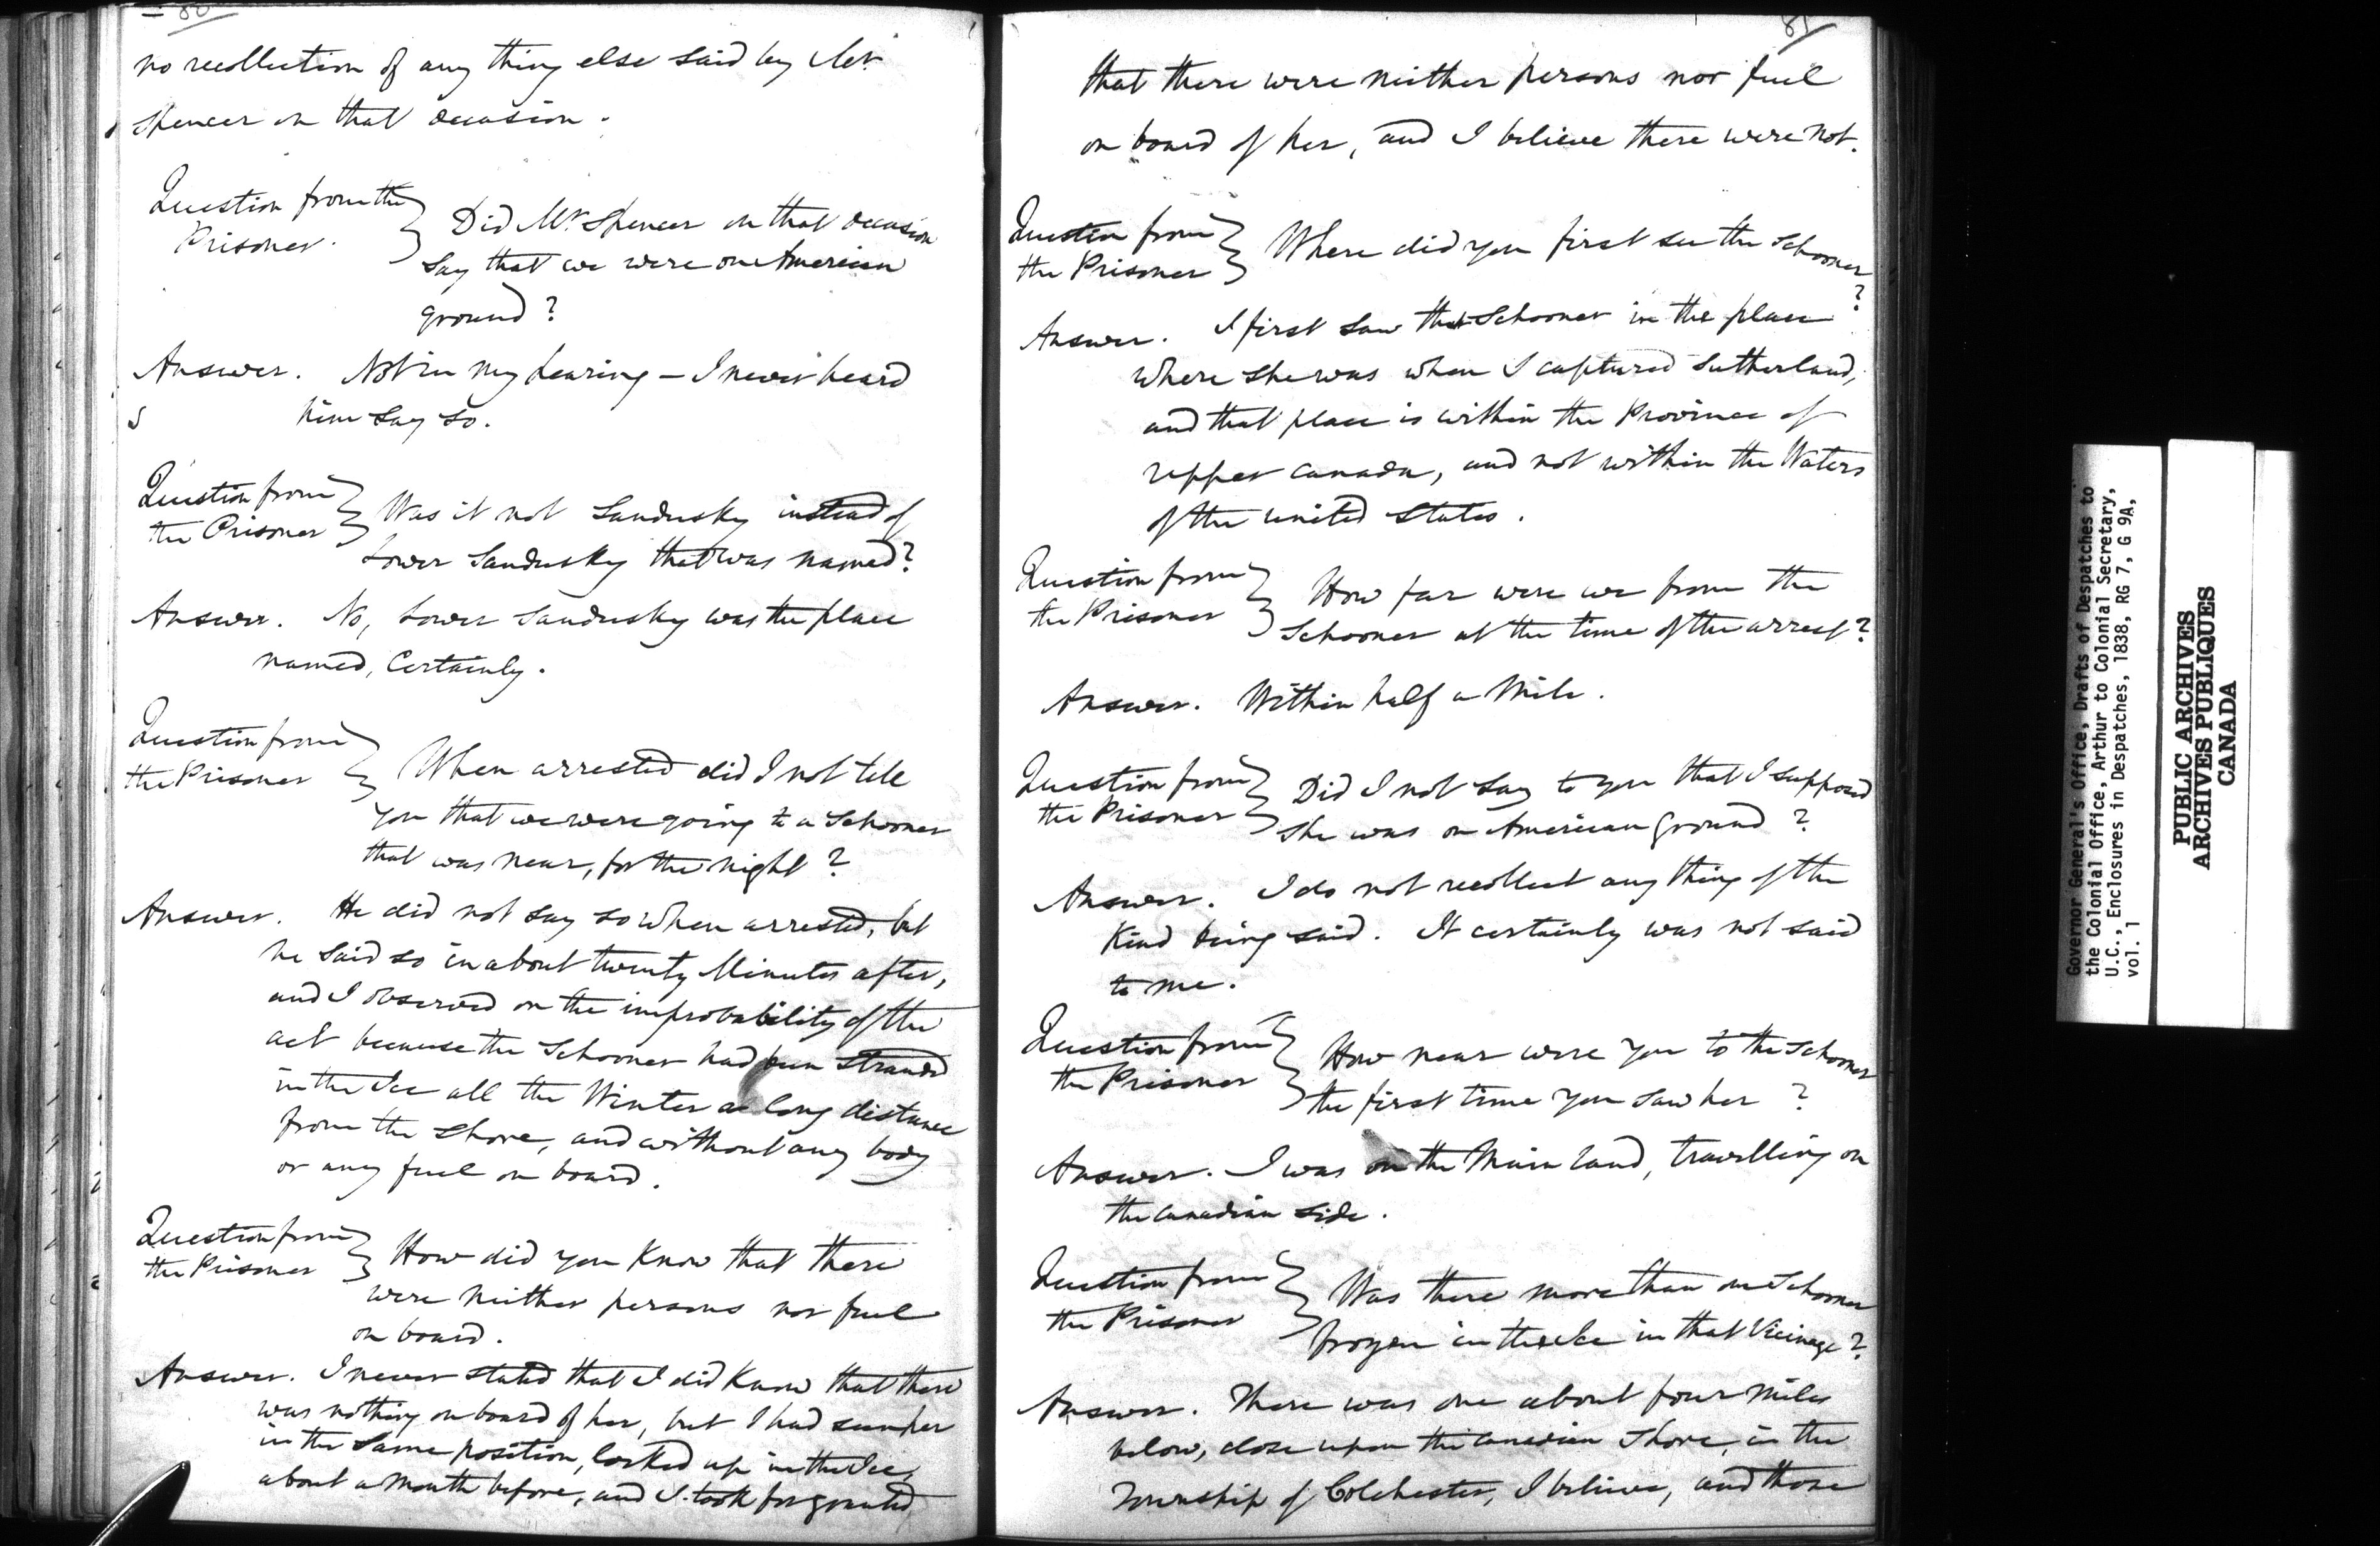 80
no recollection of any thing else said by Mr.
Spencer on that occasion.
Question from the
Prisoner.
Did Mr. Spencer on that occasion
say that we were on American
ground?
Answer. Not in my hearing – I never heard
him say so.
Question from
the Prisoner
Was it not Sandusky instead of
Lower Sandusky that was named?
Answer. No, Lower Sandusky was the place
named, Certainly.
Question from
the Prisoner
When arrested did I not tell
you that we were going to a Schooner
that was near, for the night?
Answer. He did not say so when arrested, but
he said so in about twenty Minutes after,
and I observed on the improbability of the
act because the Schooner had been Strand
in the Ice all the Winter a long distance
from the Shore, and without any body
or any fuel on board.
Question from
the Prisoner
How did you Know that there
were neither persons nor fuel
on board.
Answer. I never stated that I did Know that there
was nothing on board of her, but I had seen her
in the Same position, locked up in the Ice,
about a Month before, and I took for granted
81
that there were neither persons nor fuel
on board of her, and I believe there were not.
Question from
the Prisoner
Where did you first see the Schooner
?
Answer. I first saw the Schooner in the place
where she was when I captured Sutherland,
and that place is within the Province of
Upper Canada, and not within the Waters
of the United States.
Question from
the Prisoner
How far were we from the
Schooner at the time of the arrest?
Answer. Within half a Mile.
Question from
the Prisoner
Did I not say to you that I supposed
she was on American ground?
Answer. I do not recollect any thing of the
Kind being said. It certainly was not said
to me.
Question from
the Prisoner
How near were you to the Schooner
the first time you saw her?
Answer. I was on the Main land, travelling on
the Canadian side.
Question from
the Prisoner
Was there more than one Schooner
frozen in the Ice in that Vicinage?
Answer. There was one about four Miles
below, close upon the Canadian Shore, in the
Township of Colchester, I believe, and those
Governor General's Office, Drafts of Despatches to
the Colonial Office, Arthur to Colonial Secretary,
U.C., Enclosures in Despatches, 1838, RG 7, G 9A,
vol. 1
PUBLIC ARCHIVES
ARCHIVES PUBLIQUES
CANADA